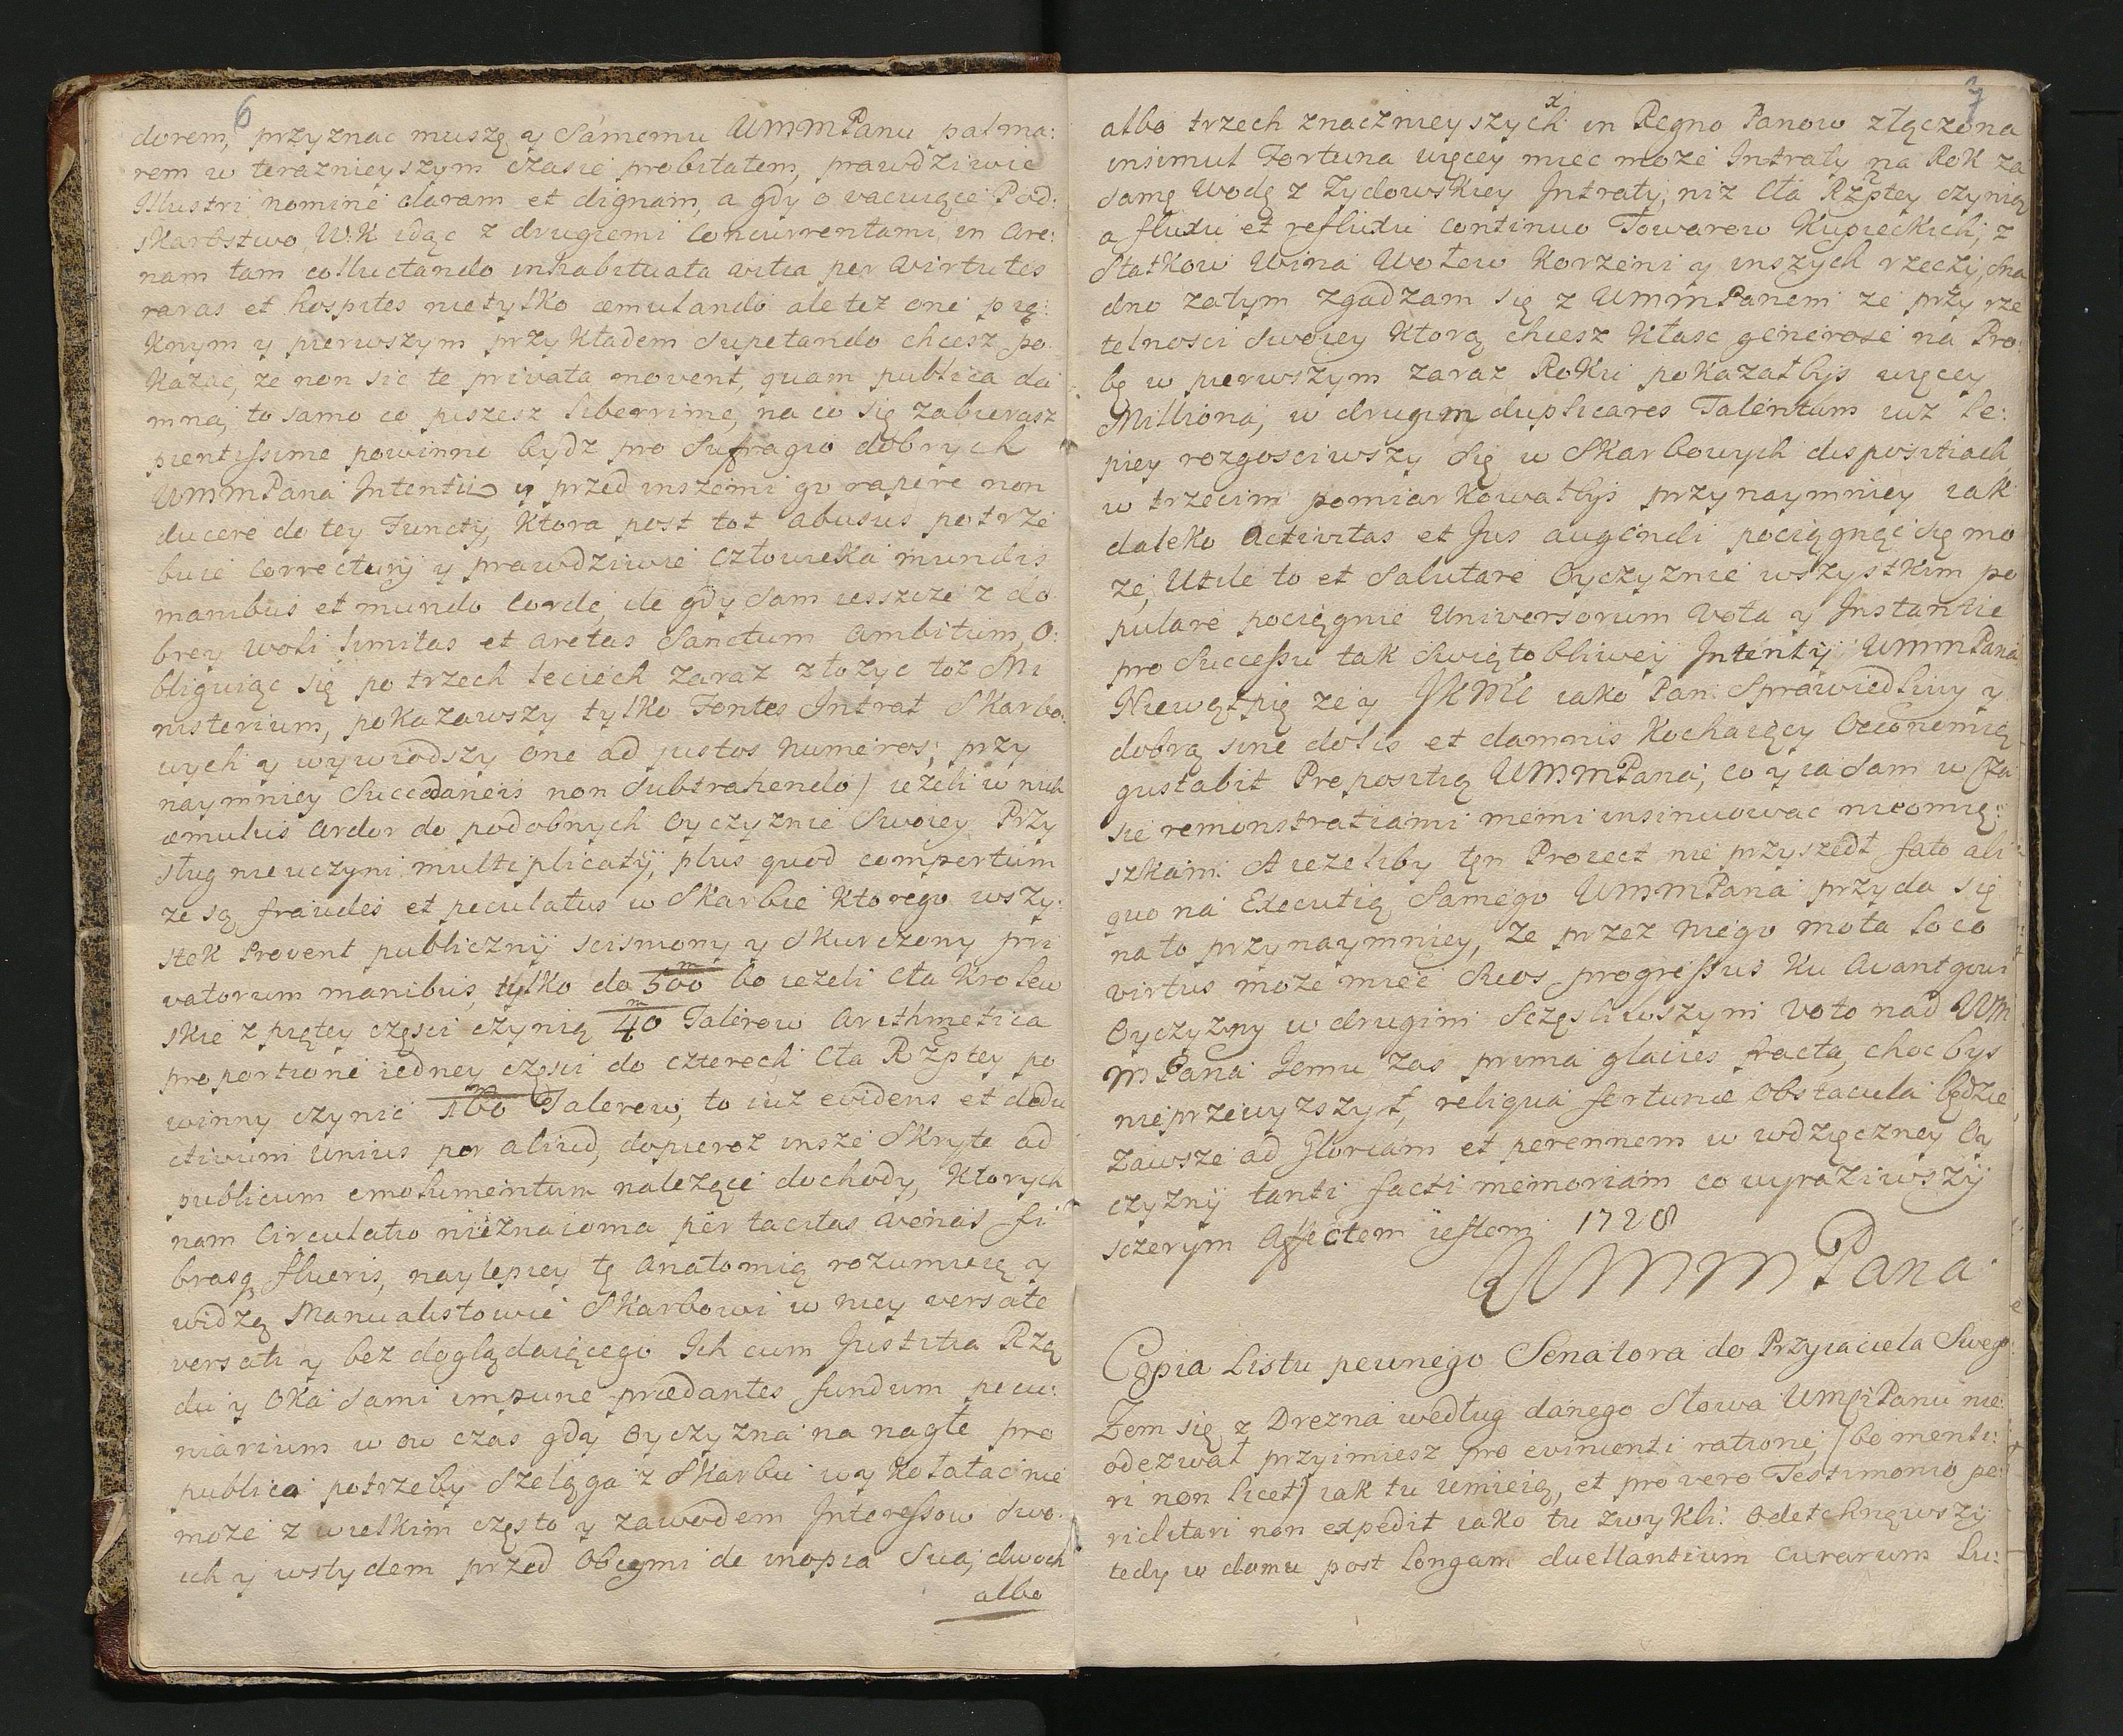 6
dorem, przyznac muszę y Samemu UMMPanu palma:
rem w teraznieyszym czasie probitatem, prawdziwie
Illustri nomine claram et dignam, a gdy o vacuiące Pod:
skarbstwo W:K idąc z drugiemi Concurrentami in Are:
nam tam colluctando inhabituata vitia per Virtutes
raras et hospites nietylko æmulando ale też one pię:
knym y pierwszym przykładem Supetando chcesz po
kazac, ze non sic te privata movent, quam publica da
mna, to samo co piszesz liberrime, na co się zabierasz
pientissime powinno bydz pro Sufragio dobrych
UMMPana Intentii y przed inszemi go rapere non
ducere do tey Functij, Ktora post tot abusus potrze
buie Correctury y prawdziwie Człowieka mundis
manibus et mundo Corde, de gdy Sam ieszcze z do
brey woli limitas et arctas Sanctum Ambitum, O:
bliguiąc się po trzech leciech zaraz złozyc toz Mi
nisterium, pokazawszy tylko Fontes Intrat Skarbo:
wych y wywiodszy one ad justos numeros; przy
naymniey Succedaneis non Subtrahendo / ieżeli w nich
æmulus Ardor do podobnych Oyczyznie Swoiey Przy
sług nieuczyni multiplicatij, plus quod compertum
ze są fraudes et peculatus w Skarbie Ktorego wszy:
stek Provent publicznij scismony y skurczony pri
vatorum manibus, tylko do 500 m bo iezeli Cła Krolew
skie z piątey części czynią 40 m Talerow Arithmetica
proportione iedney częsci do czterech Cła Rzptey po
winny czynić 160 m Talerow, to iuz evidens et dedu
ctivum Unius per aliud, dopieroz insze Skryte ad
publicum emolumentum nalezące dochody, Ktorych
nam Circulatio nieznaioma per tacitas Avenas fi
brasq flueris, naylepiey tę Anatomią rozumieią y
widzą Manualistowie Skarbowi w niey versate
versati y bez doglądaiącego Ich cum Justitia Rzą
du y Oka Sami impune prædantes fundum pecu:
niarium w ow czas gdy Oyczyzna na nagłe pro
publico potrzeby Szeląga z Skarbu wykołatac nie
moze z wielkim często y zawodem Interessow Swo
ich y wstydem przed Obcymi de inopia Sua; dwoch
albo
7
albo trzech znacznieyszych in Regno Panow złączona
insimul Fortuna więcey miec moze Intraty na Rok za
samą Wodę z Zydowskiey Intraty, niz Cła Rzptey czynią
a fluxu et refluxu continuo Towarow Kupieckich, z
Statkow Wina Wołow Korzeni y inszych rzeczy, Sna
dno zatym zgadzam się z UMMPanem ze przy rze
telnosci Swoiey Ktorą chcesz Kłasc generose na Pro
bę w pierwszym zaraz Roku pokazałbys więcey
Milliona, w drugim duplicares Talentum iuz le:
piey rozgosciwszy Się w Skarbowych dispositiach,
w trzecim pomiarkowałbys przynaymniey iak
daleko Activitas et Jus augendi pociągnąć się mo
że, Utile to et Salutare Oyczyznie wszystkim po
pulare pociągnie Universorum Vota y Instantie
pro Successu tak Swiętobliwey Intentij UMMPana
Niewątpię ze y JKMć iako Pan Sprawiedliwy y
dobrą sine dolis et damnis Kochaiący Oeconomią
gustabit Propositią UMMPana, co y ia Sam w Cza
sie remonstratiami memi insinuowac nieomię:
szkam. A iezeliby ten Proiect nie przyszedł fato ali
quo na Executią Samego UMMPana przyda się
na to przynaymniey, ze przez niego mota loco
virtus moze mieć Suos progressus ku Avantgowi
Oyczyzny w drugim Sczęsliwszym voto nad UM
MPana Jemu zas prima glacies fracta, chocbys
nieprzewyzszył, reliqua fortunæ Obstacula będzie
zawsze ad Gloriam et perennem w wdzięczney Oy
czyznij tanti facti memoriam co wyraziwszy
sczerym Affectem iestem 1728
UMMPana
Copia Listu pewnego Senatora do Przyiaciela Swego
Zem się z Drezna według danego Słowa UMMPanu nie:
odezwał przyimiesz pro evincenti ratione, (bo menti:
ri non licet) iak tu umieią, et pro vero Testimonio pe:
riclitari non expedit iako tu zwykli: Odetchnąwszy
tedy w domu post longam duellantium curarum lu: